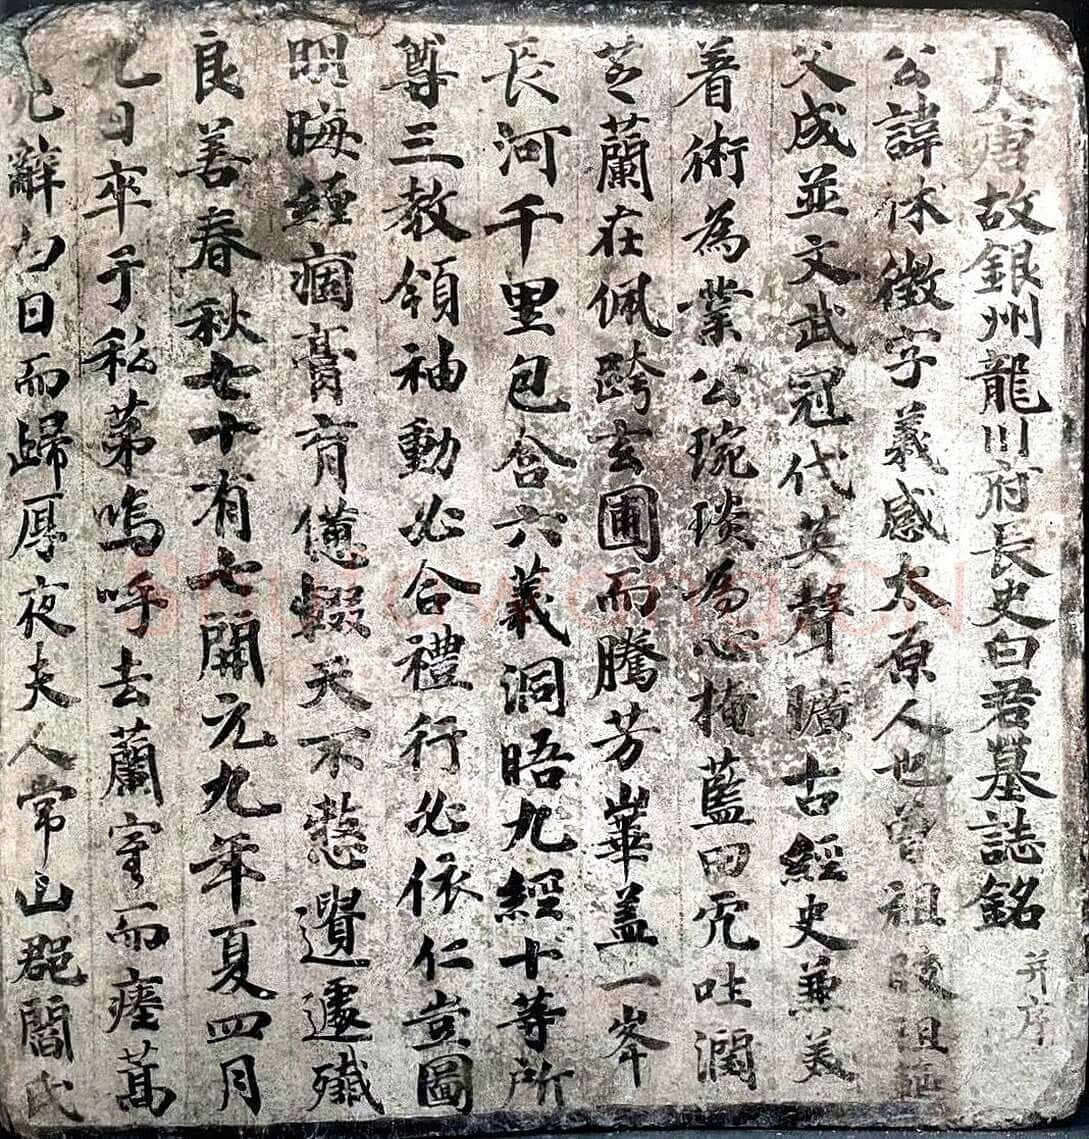 大唐故銀州龍川府長史白君墓誌銘 并序
公諱休徵字義感太原人也曾祖陵祖
父成並文武冠代英聲曠古經史兼美
著術為業公琬琰為心掩藍田而吐潤
芝蘭在佩跨玄圃而騰芳崋蓋一峯
長河千里包含六義洞晤九經十等所
尊三教領袖動必合禮行必依仁豈圖
明晦經痼膏肓僊輟天不憖遺遽殲
良善春秋七十有七開元九年夏四月
九日卒于私苐嗚呼去蘭室而瘞萬
辭白日而歸厚夜夫人常山郡閻氏